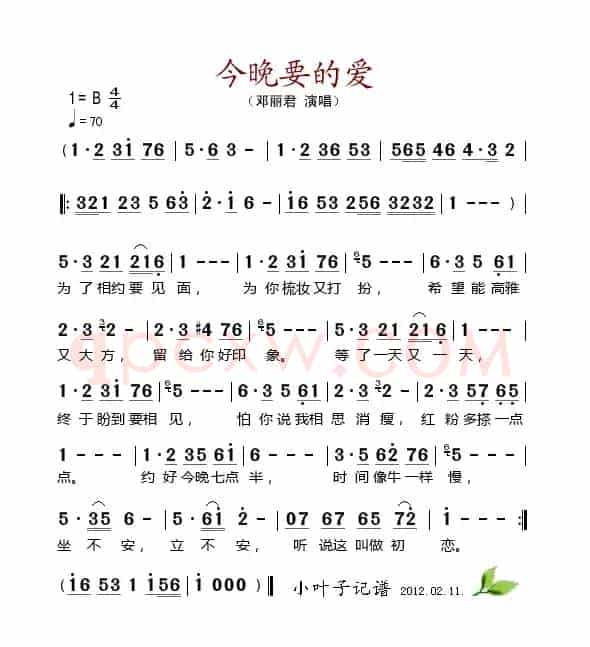 今晚要的爱
1=B 4/4
（邓丽君 演唱）
♩=70
（1·2 31 76 | 5·6 3 - | 1·2 36 53 | 565 46 4·3 2 |
‖: 321 23 5 63 | 2·1 6 - | 16 53 256 3232 | 1 - - - ）|
5·3 21 216 | 1 - - - | 1·2 31 76 | 6 5 - - - | 6·3 5 61 |
为了相约要见面， 为你梳妆又打扮， 希望能高雅
2·3 3 2 - | 2·3 #4 76 | 6 5 - - - | 5·3 21 216 | 1 - - - |
又大方， 留给你好印象。 等了一天又一天，
1·2 31 76 | 6 5 - - - | 6·3 5 61 | 2·3 3 2 - | 2·3 57 65 |
终于盼到要相见， 怕你说我相思消瘦， 红粉多搽一点
1 - - - | 1·2 35 61 | 5 - - - | 3·5 62 76 | 6 5 - - - |
点。 约好今晚七点半， 时间像牛一样慢，
5·35 6 - | 5·61 2 - | 07 67 65 72 | 1 - - - :‖
坐不安， 立不安， 听说这叫做初恋。
（16 53 1 156 | 1 000 ）| 小叶子记谱 2012.02.11.
qpcxw.com